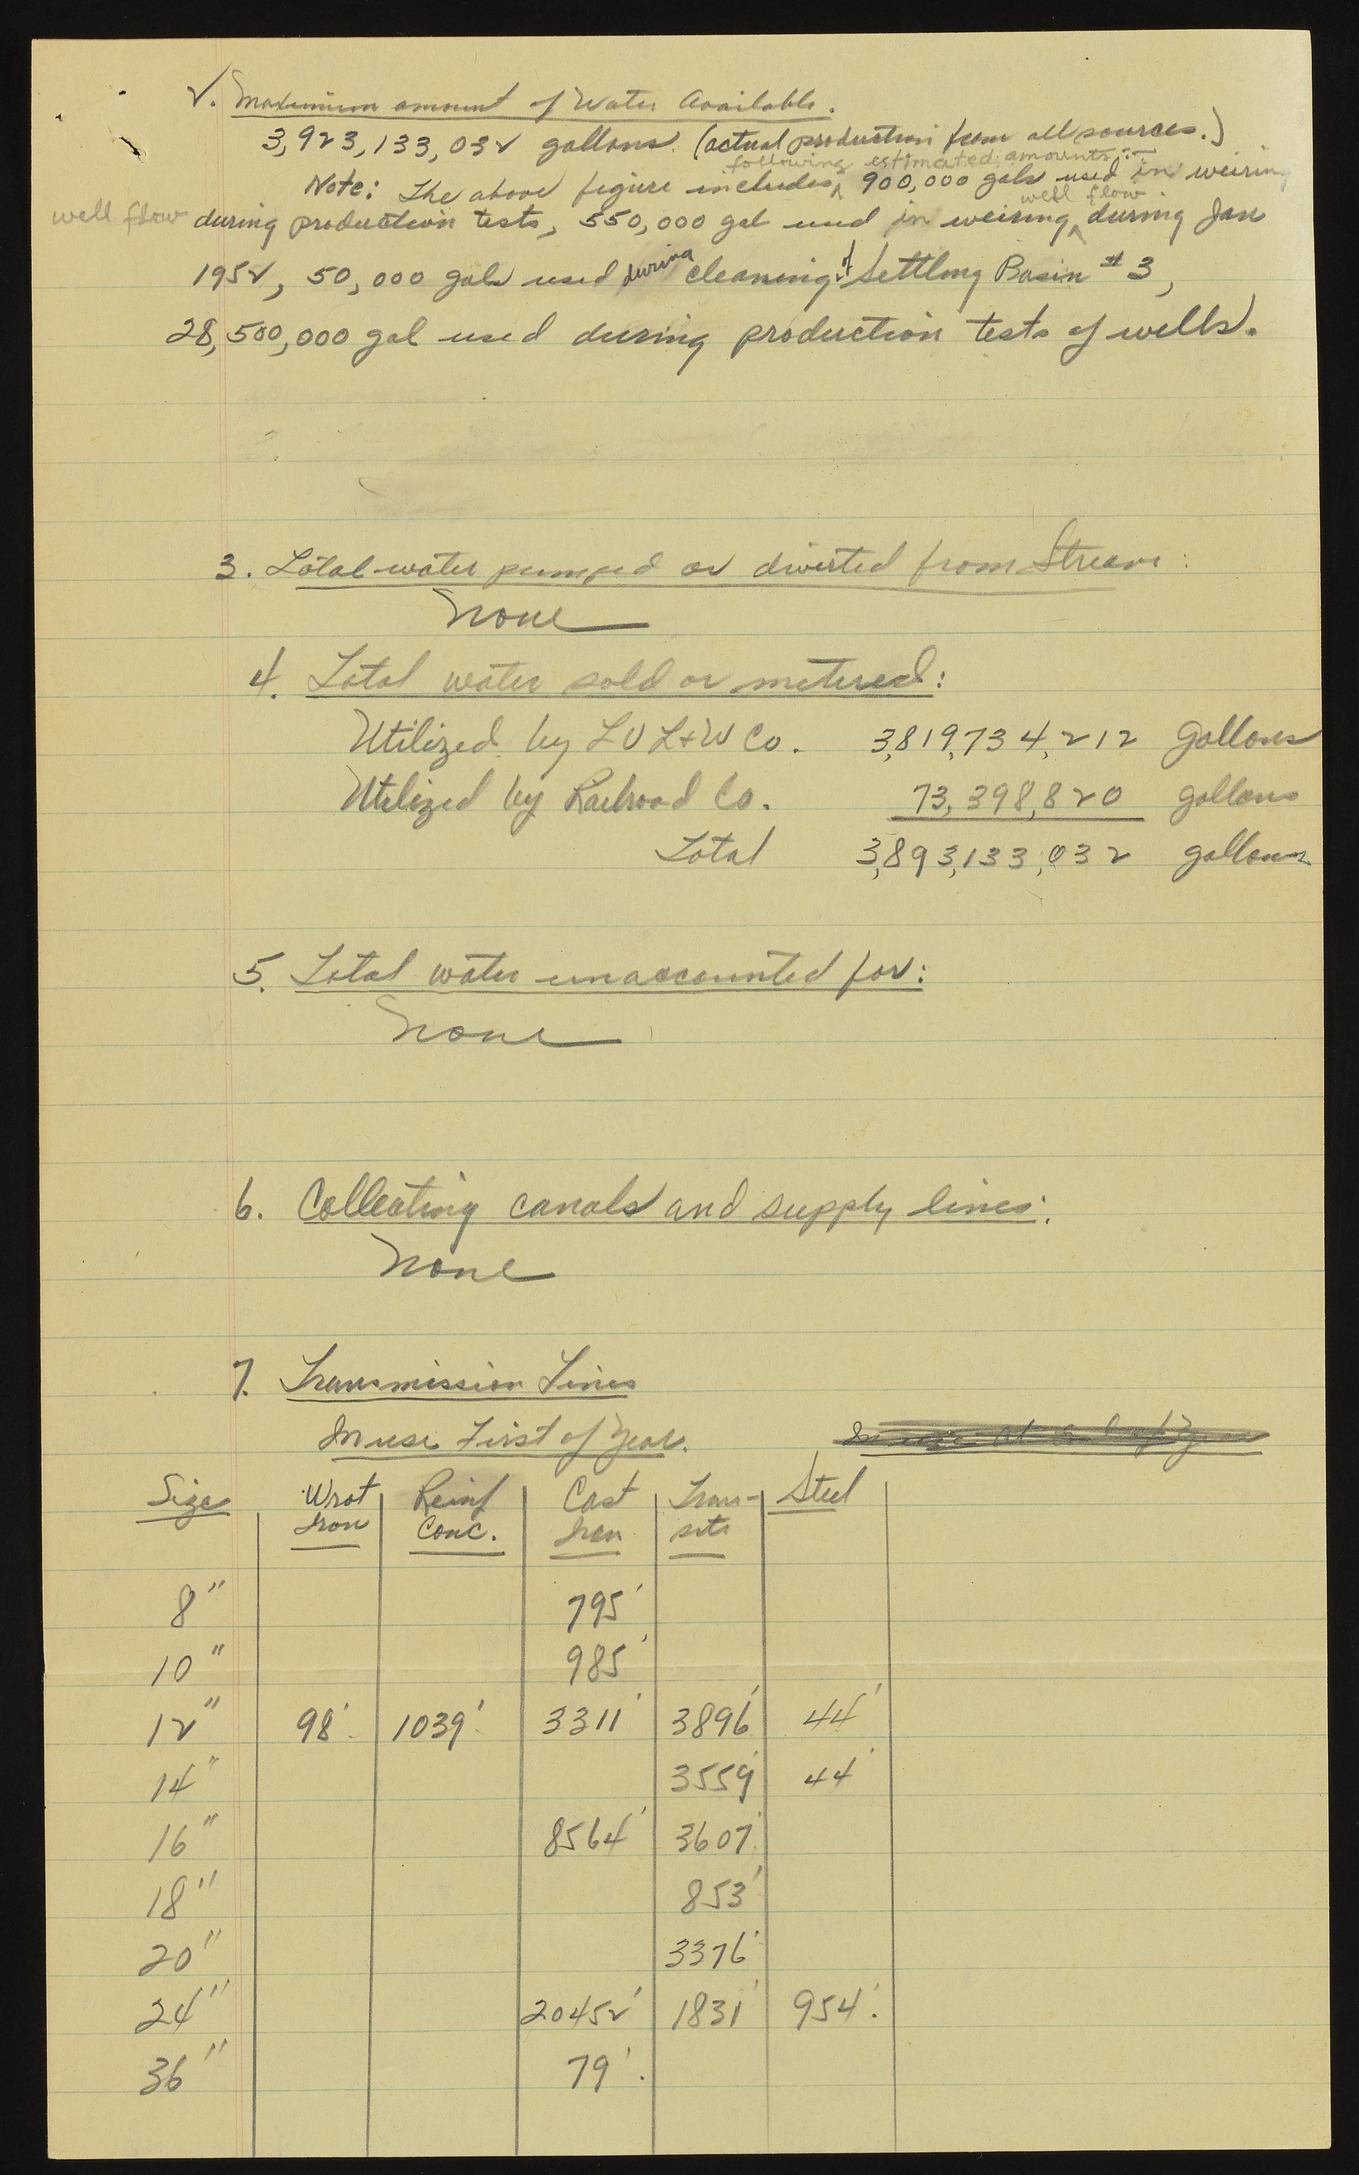 2. Maximum amount of Water Available.
3,923,133,032 gallons. (actual production from all sources.)
following estimated amounts:-
Note: The above figure includes ^ 900,000 gals used in weiring
well flow
well flow during production tests, 550,000 gal used in weiring ^ during Jan
1952, 50,000 gals used during cleaning of Settling Basin #3,
28,500,000 gal used during production tests of wells.
3. Total water pumped or diverted from Stream:
None
4. Total water sold or metered:
Utilized by L V L & W Co. 3,819,734,212 gallons
Utilized by Railroad Co. 73,398,820 gallons
Total 3,893,133,032 gallons
5. Total water unaccounted for:
None
6. Collecting canals and supply lines:
None
7. Transmission Lines
In use First of Year. In use at End of Year
Size Wrot Reinf Cast Tran- Steel
Iron Conc. Iron site
8" 795'
10" 985'
12" 98' 1039' 3311' 3896' 44'
14" 3559' 44'
16" 8564' 3607'
18" 853'
20" 3376'
24" 20452' 1831' 954'.
36" 79'.